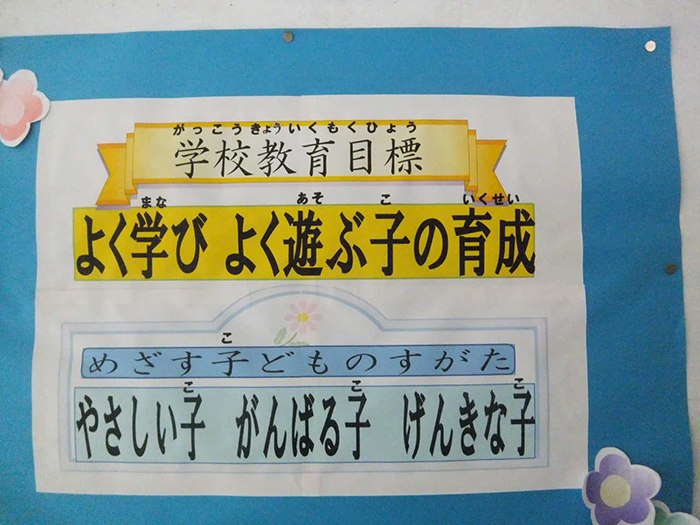 がっこうきょういくもくひょう
学校教育目標
まな あそ こ いくせい
よく学び よく遊ぶ子の育成
こ
めざす子どものすがた
こ こ こ
やさしい子 がんばる子 げんきな子